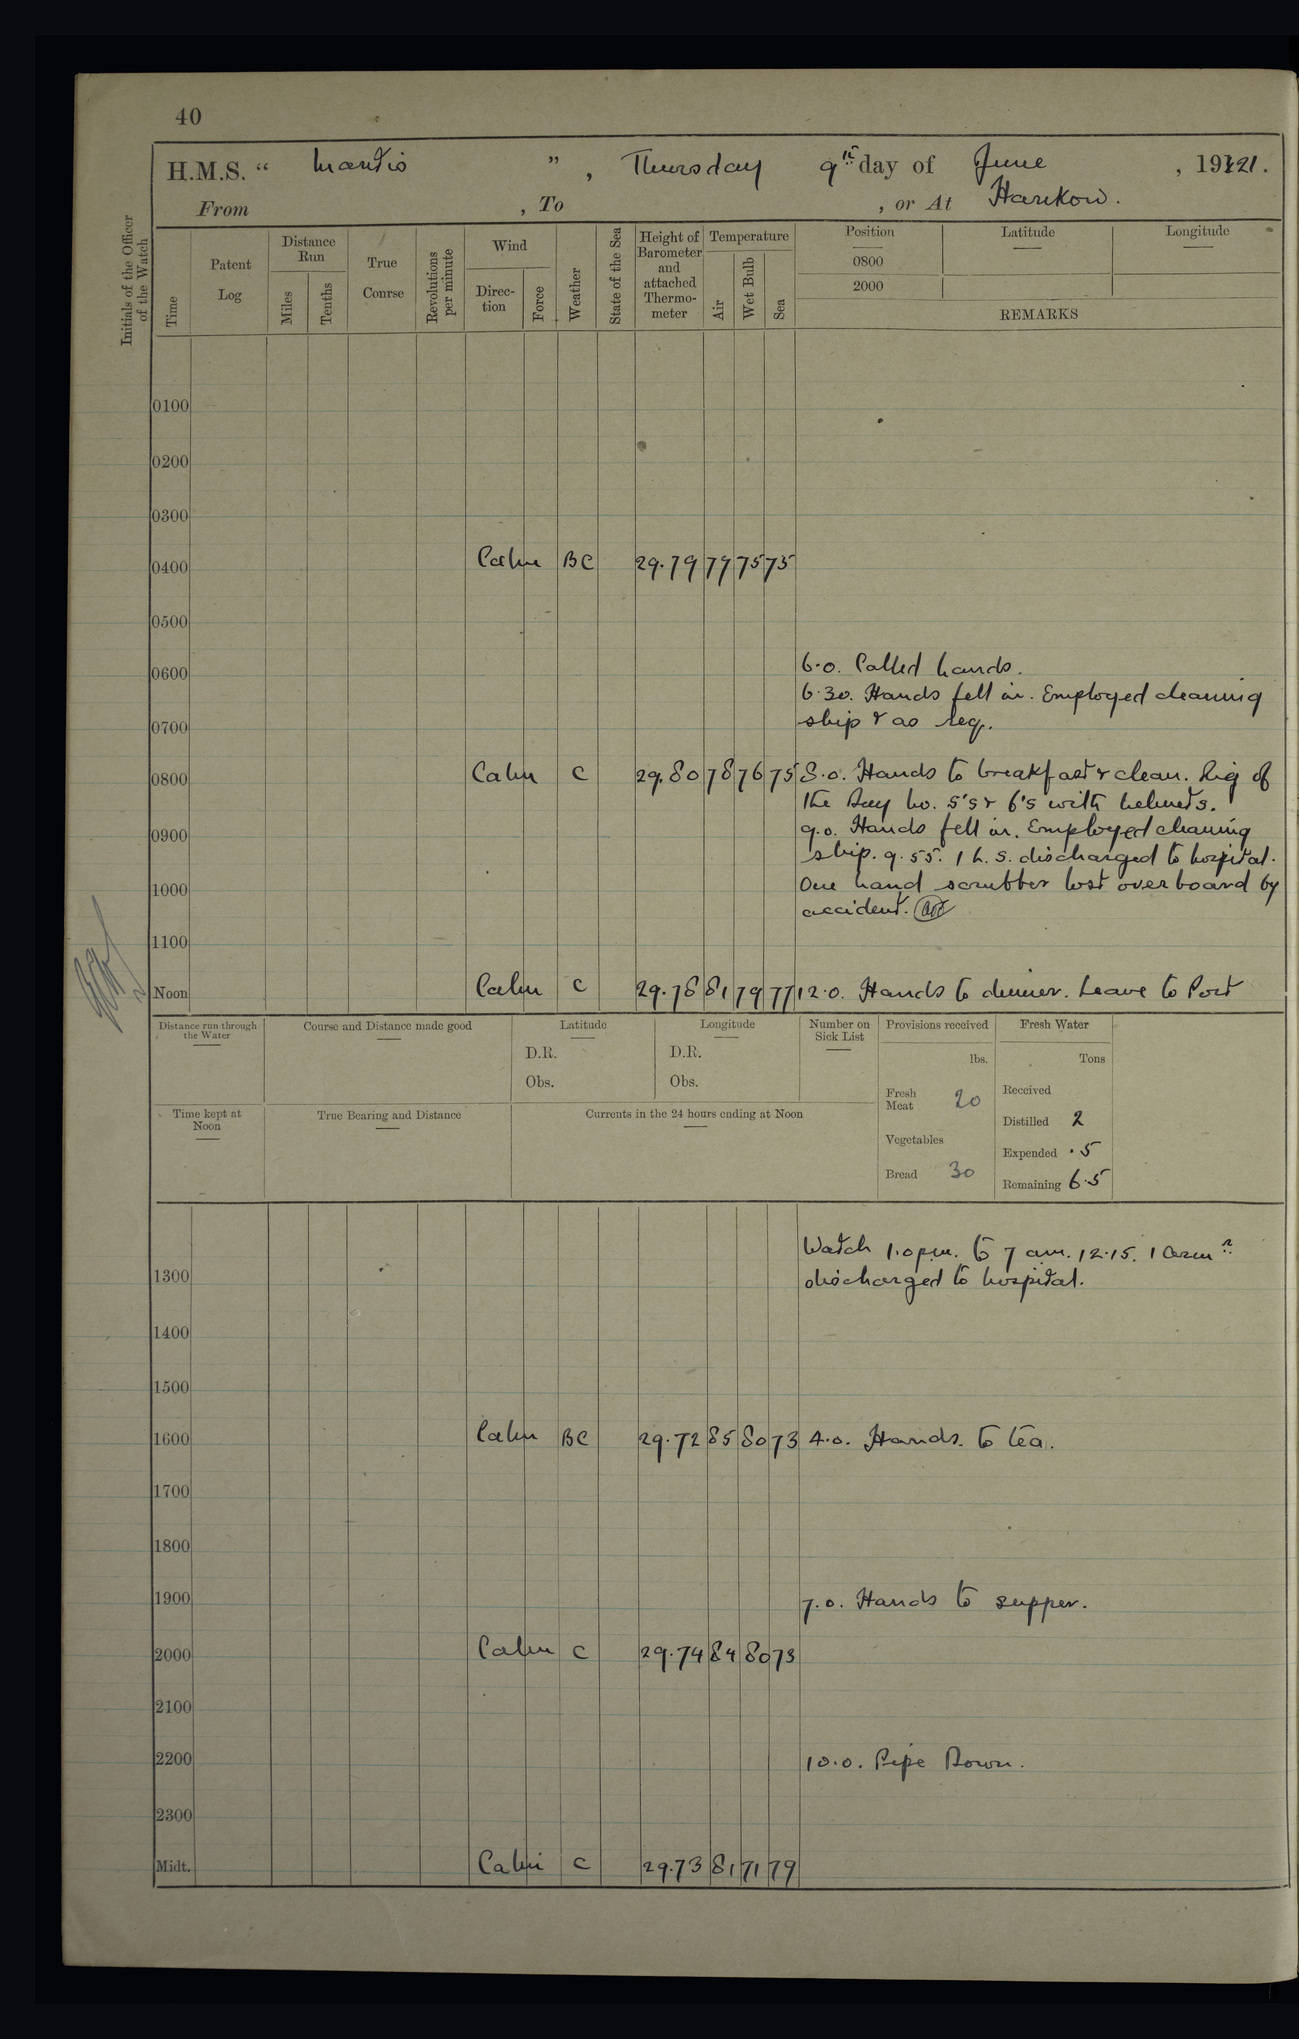 40
H.M.S. “ Mantis ” , Thursday 9th day of June , 1921 .
From , To , or At Hankow .
Initials of the Officer of the Watch
Time
Patent Log
Distance Run
Miles
Tenths
True Course
Revolutions per minute
Wind
Direc-tion
Force
Weather
State of the Sea
Height of Barometer and attached Thermo-meter
Temperature
Air
Wet Bulb
Sea
Position Latitude Longitude
0800
2000
REMARKS
0100
0200
0300
0400 Calm BC 29.79 77 75 75
0500
0600 6.0. Called hands.
6.30. Hands fell in. Employed cleaning
0700 ship & as req.
0800 Calm C 29.80 78 76 75 8.0. Hands to breakfast & clean. Rig of
the Day No. 5's & 6's with helmets.
0900 9.0. Hands fell in. Employed cleaning
ship. 9.55. 1 L.S. discharged to hospital.
1000 One hand scrubber lost overboard by
accident.
1100
Noon Calm C 29.78 81 79 77 12.0. Hands to dinner. Leave to Port
Distance run through the Water
Course and Distance made good
Latitude
D.R.
Obs.
Longitude
D.R.
Obs.
Number on Sick List
Provisions received
lbs.
Fresh Meat 20
Vegetables
Bread 30
Fresh Water
Tons
Received
Distilled 2
Expended .5
Remaining 6.5
Time kept at Noon
True Bearing and Distance
Currents in the 24 hours ending at Noon
Watch 1.0 p.m. to 7 am. 12.15. 1
1300 discharged to hospital.
1400
1500
1600 Calm BC 29.72 85 80 73 4.0. Hands to tea.
1700
1800
1900 7.0. Hands to supper.
2000 Calm C 29.74 84 80 73
2100
2200 10.0. Pipe Down.
2300
Midt. Calm C 29.73 81 71 79